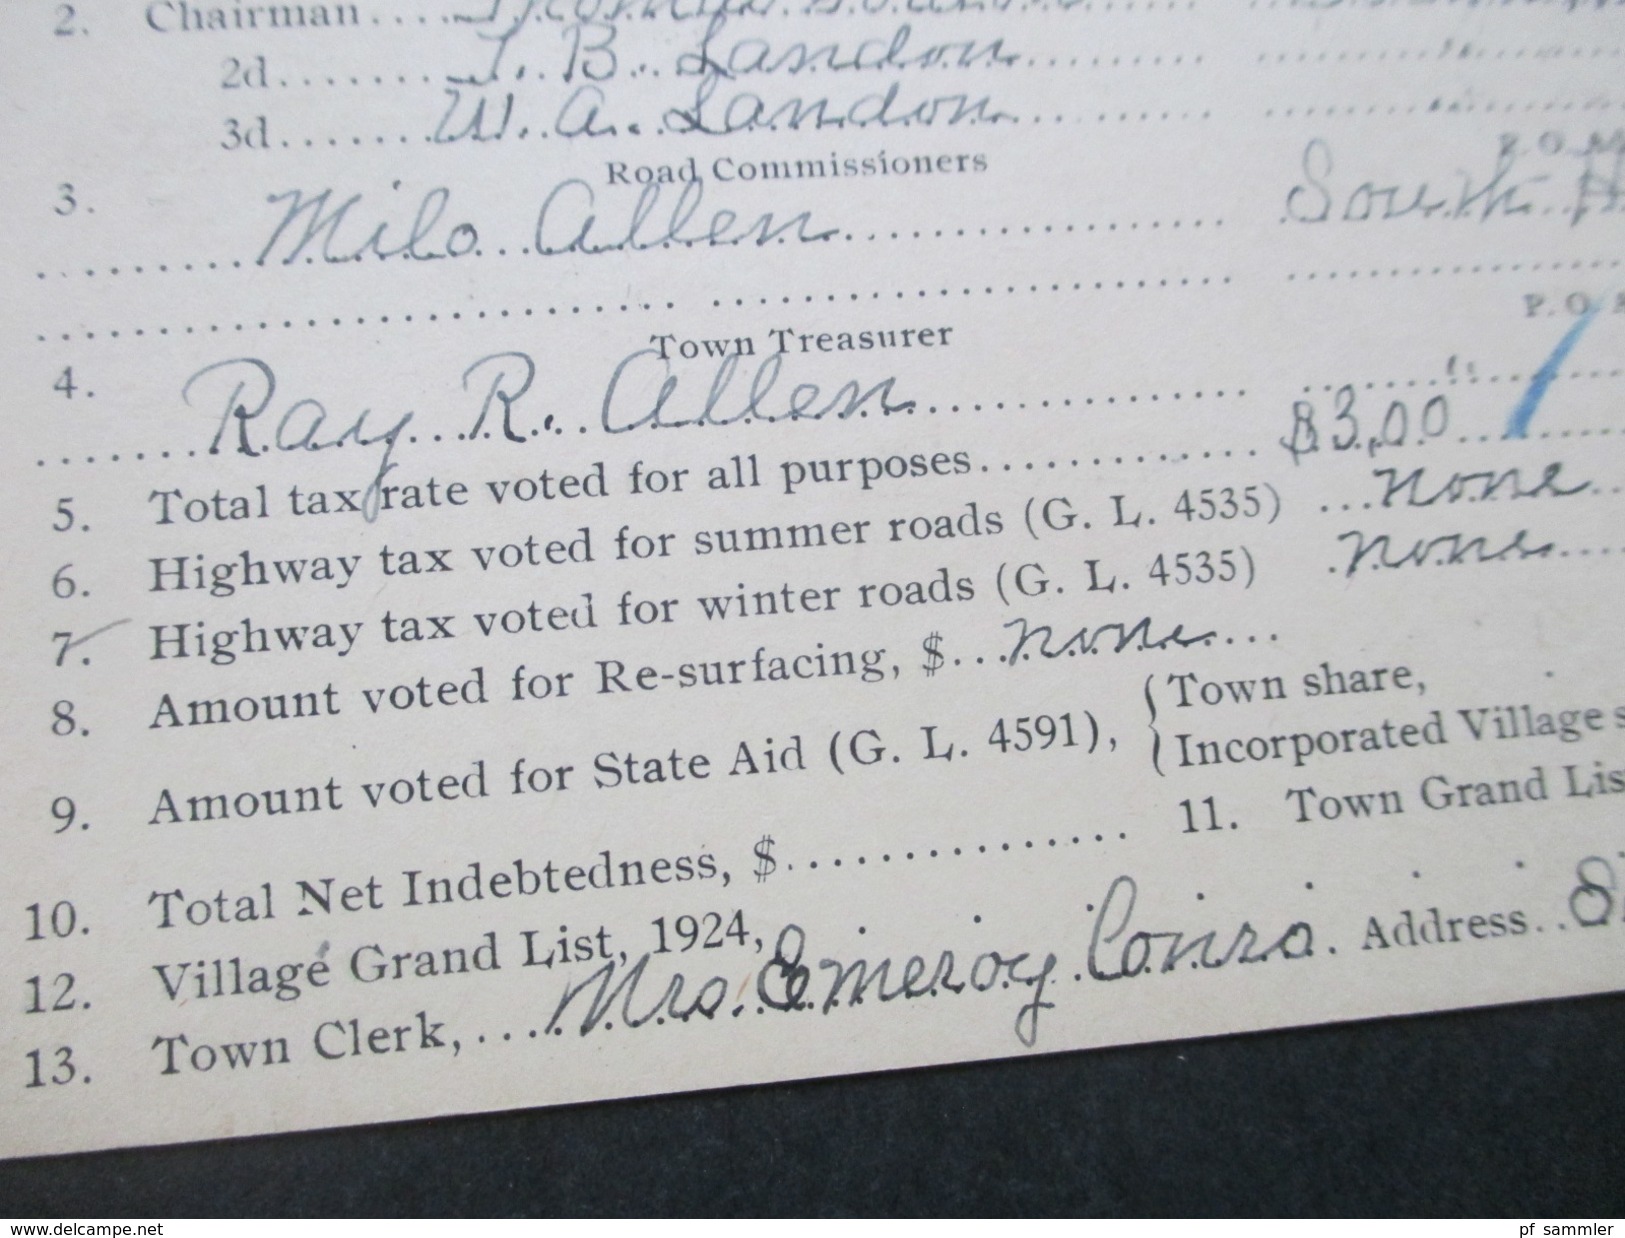 2. Chairman
2d....... T. B. Landon
3d....... W. A. Landon
Road Commissioners
3. Milo Allen South H
Town Treasurer P.O.
4. Ray R. Allen "
5. Total tax rate voted for all purposes............. $3.00
6. Highway tax voted for summer roads (G. L. 4535) ...none
7. Highway tax voted for winter roads (G. L. 4535) none
8. Amount voted for Re-surfacing, $...none...
9. Amount voted for State Aid (G. L. 4591), { Town share,
Incorporated Village s
10. Total Net Indebtedness, $............... 11. Town Grand Lis
12. Village Grand List, 1924,
13. Town Clerk,.... Mrs. Emeroy Conro. Address..
www.delcampe.net
pf_sammler